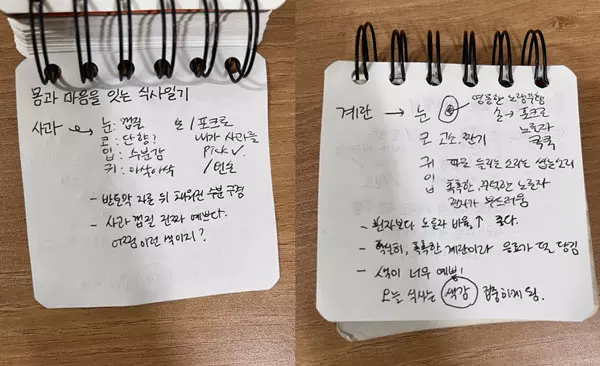 몸과 마음을 잇는 식사일기
사과 → 눈: 껍질 손 / 포크로
코: 단향? 내가 사과를
입: 수분감 Pick ✓.
귀: 아삭아삭 / 만손
- 반토막 자른 뒤 채워진 수분 구경
- 사과 껍질 진짜 예쁘다.
어쩜 이런 색이지?
계란 → 눈 영롱한 노랑구황
손 → 포크로
코 고소, 짠기 노른자
쿡쿡
귀 따로 들리는 소리는 씹는소리
입 촉촉한, 꾸덕한 노른자
흰자가 부드러움
- 흰자보다 노른자 비율↑ 좋다.
- 확실히, 촉촉한 계란이라 음료가 덜 당김
- 색이 너무 예뻐!
오늘 식사는 색감 집중하게 됨.